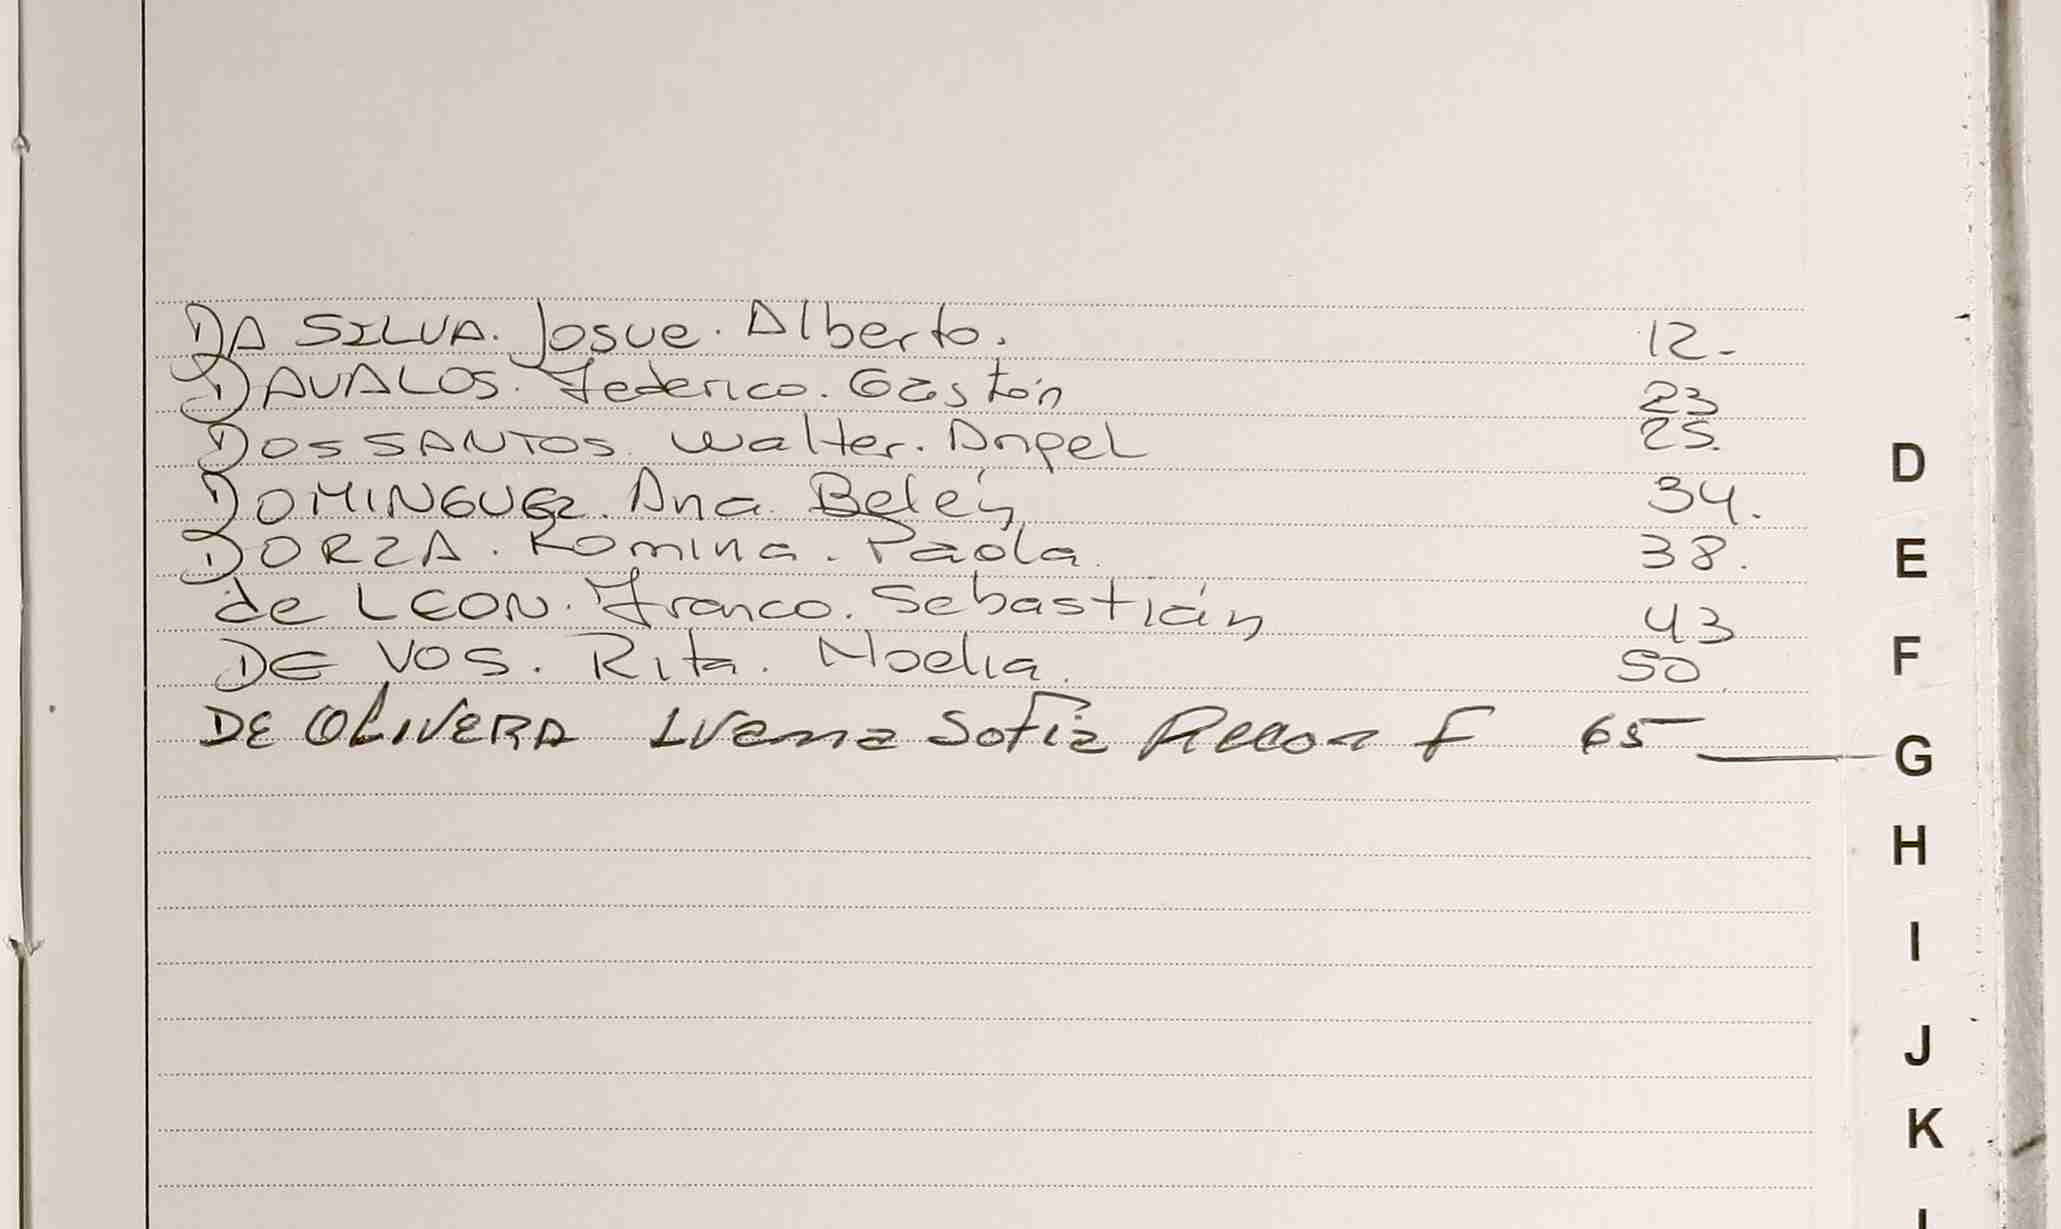 DA SILVA. Josue. Alberto. 12-
DAVALOS. Federico. Gastón 23
DOS SANTOS. Walter. Angel 25.
DOMINGUEZ. Ana. Belén 34.
DORZA. Romina. Paola. 38.
de LEON. Franco. Sebastián 43
DE VOS. Rita. Noelia. 50
DE OLIVERA Sofia F 65
D
E
F
G
H
I
J
K